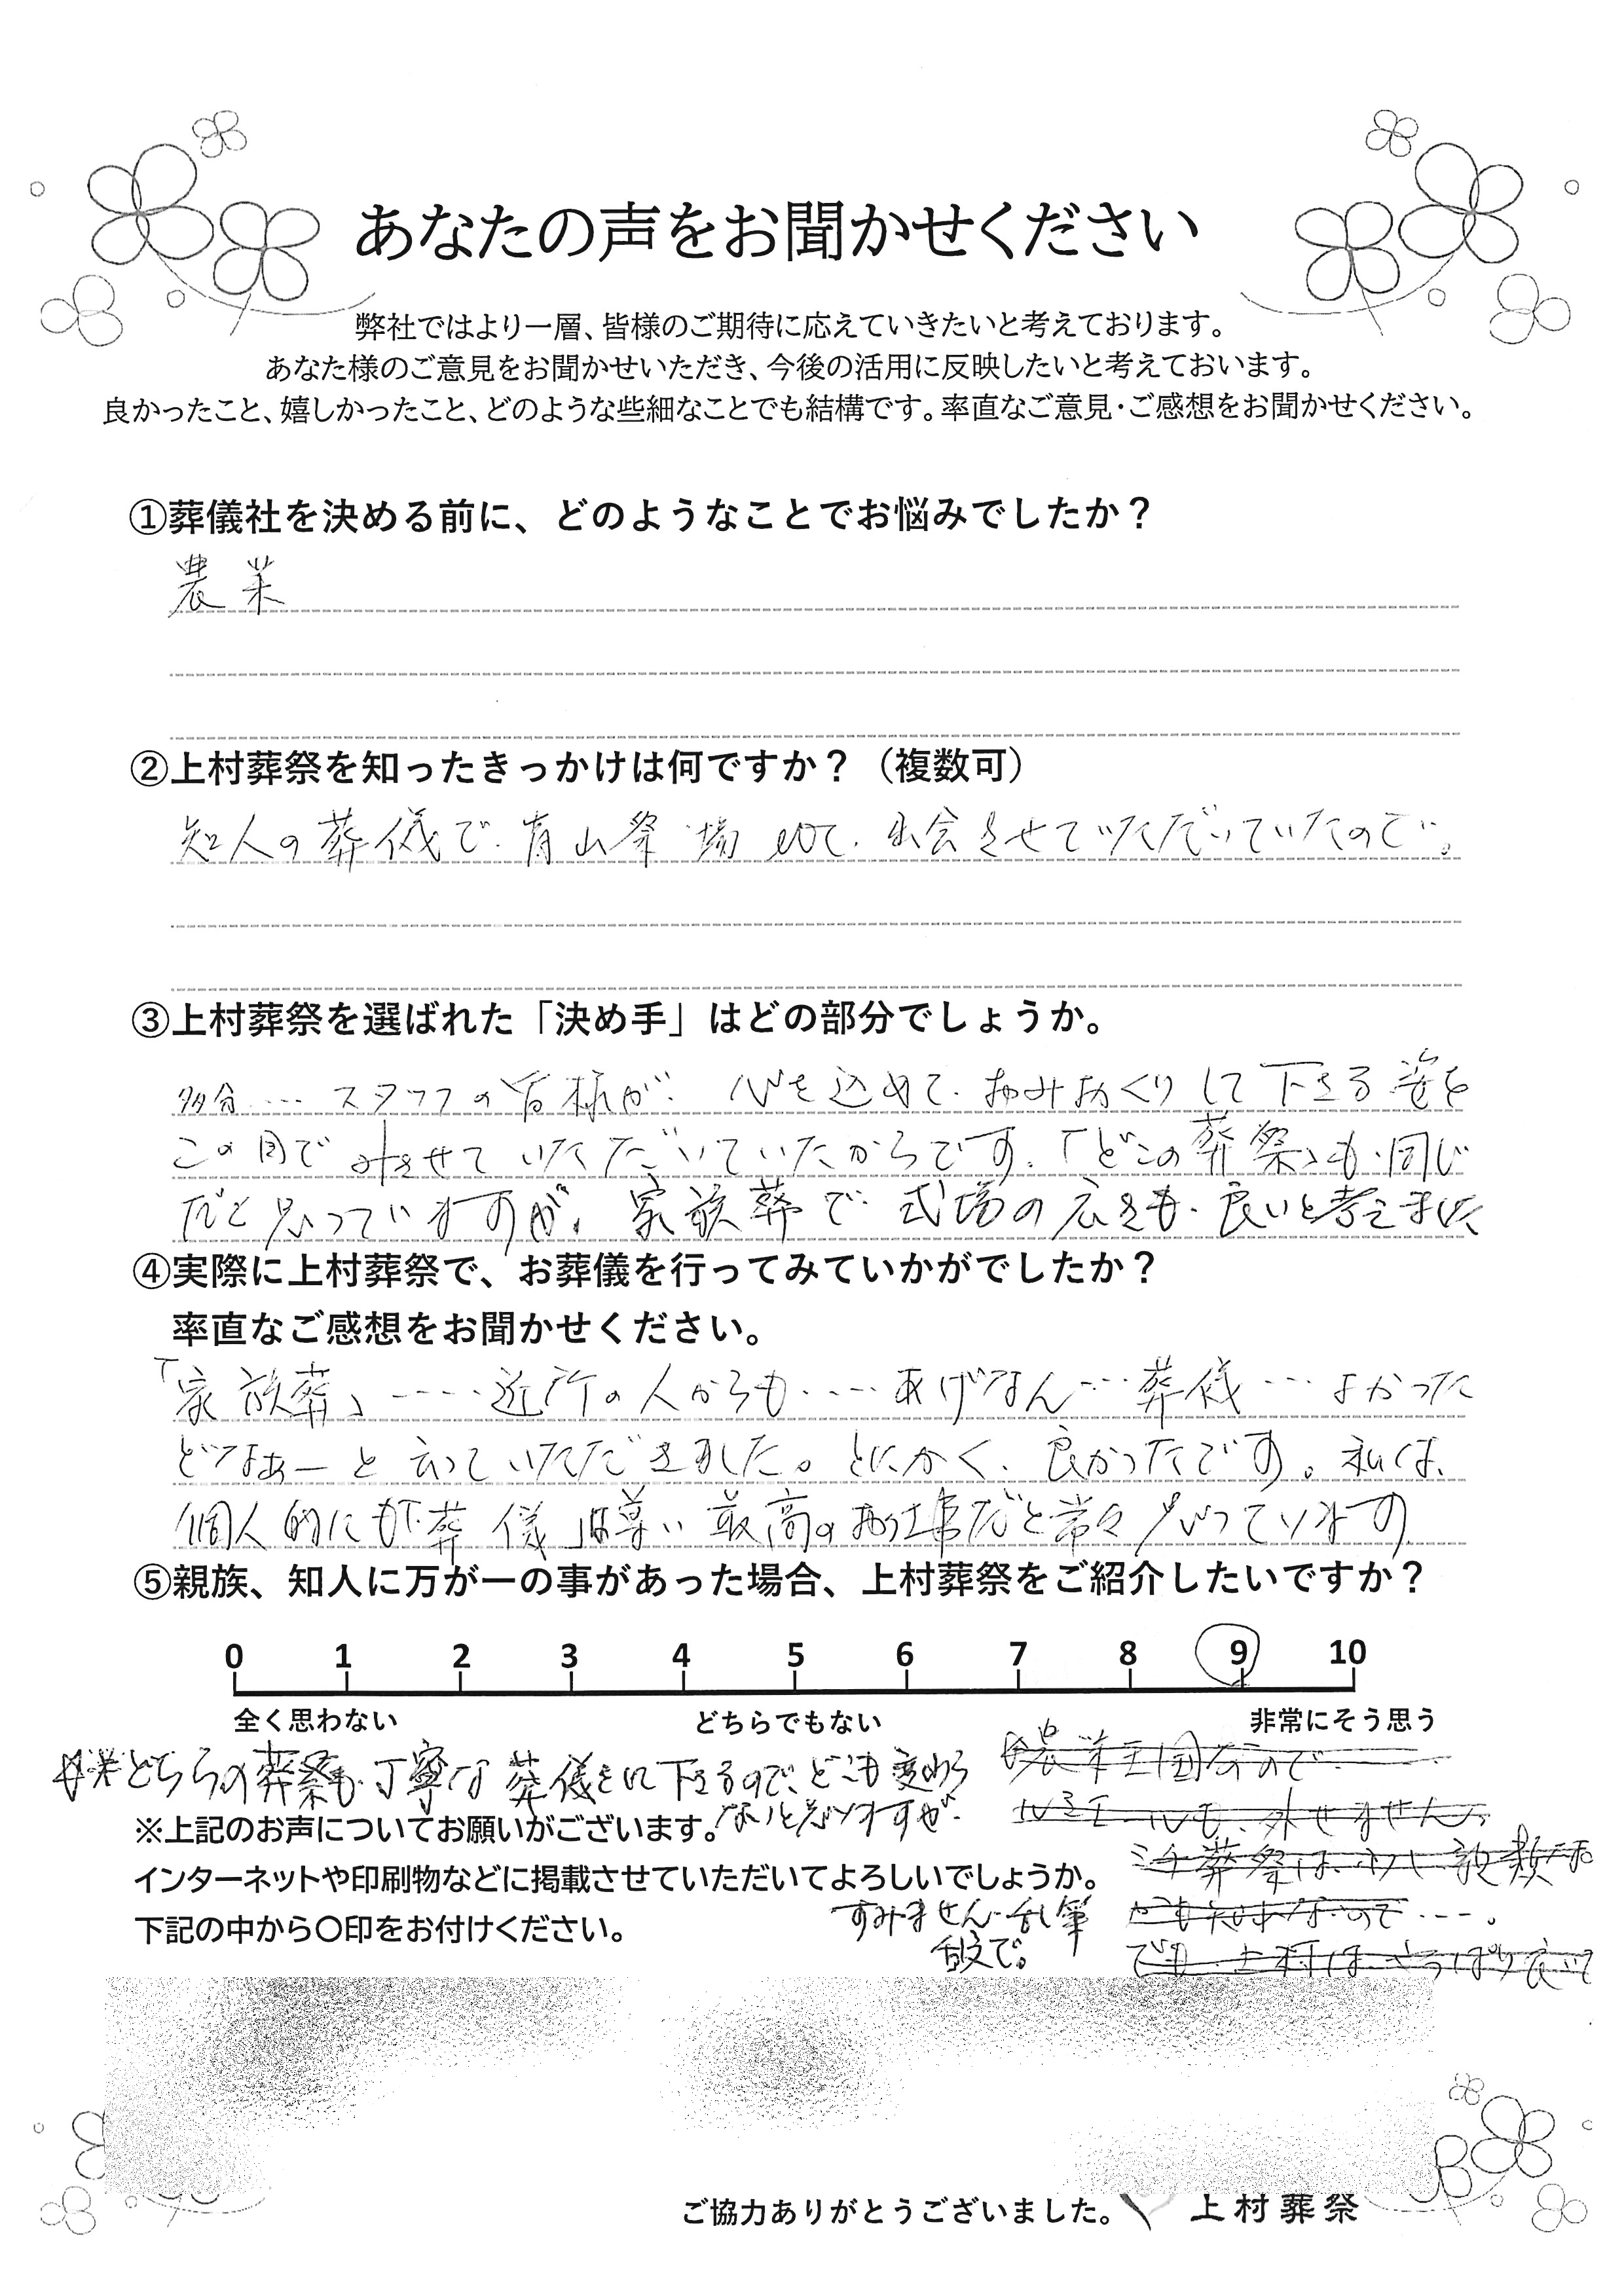 あなたの声をお聞かせください
弊社ではより一層、皆様のご期待に応えていきたいと考えております。
あなた様のご意見をお聞かせいただき、今後の活用に反映したいと考えておいます。
良かったこと、嬉しかったこと、どのような些細なことでも結構です。率直なご意見・ご感想をお聞かせください。
①葬儀社を決める前に、どのようなことでお悩みでしたか？
農業
②上村葬祭を知ったきっかけは何ですか？（複数可）
知人の葬儀で、有山祭場etc、出会させていただいていたので。
③上村葬祭を選ばれた「決め手」はどの部分でしょうか。
多分…. スタッフの皆様が、心を込めて、おみおくりして下さる姿を
この目でみさせていただいていたからです。「どこの葬祭」も、同じ
だと思っていますが、家族葬で、式場の広さも、良いと考えました
④実際に上村葬祭で、お葬儀を行ってみていかがでしたか？
率直なご感想をお聞かせください。
「家族葬」----近所の人からも….あげなん…葬儀…よかった
どなぁーと云っていただきました。とにかく、良かったです。私は、
個人的にも「葬儀」は尊い最高のお仕事だと常々思っています
⑤親族、知人に万が一の事があった場合、上村葬祭をご紹介したいですか？
0 1 2 3 4 5 6 7 8 9 10
全く思わない どちらでもない 非常にそう思う
どちらの葬祭も、丁寧な葬儀をして下さるので、どこも変わら
ないと思いますが、
※上記のお声についてお願いがございます。
インターネットや印刷物などに掲載させていただいてよろしいでしょうか。
下記の中から〇印をお付けください。
すみません、乱筆
乱文で。
ご協力ありがとうございました。
上村葬祭